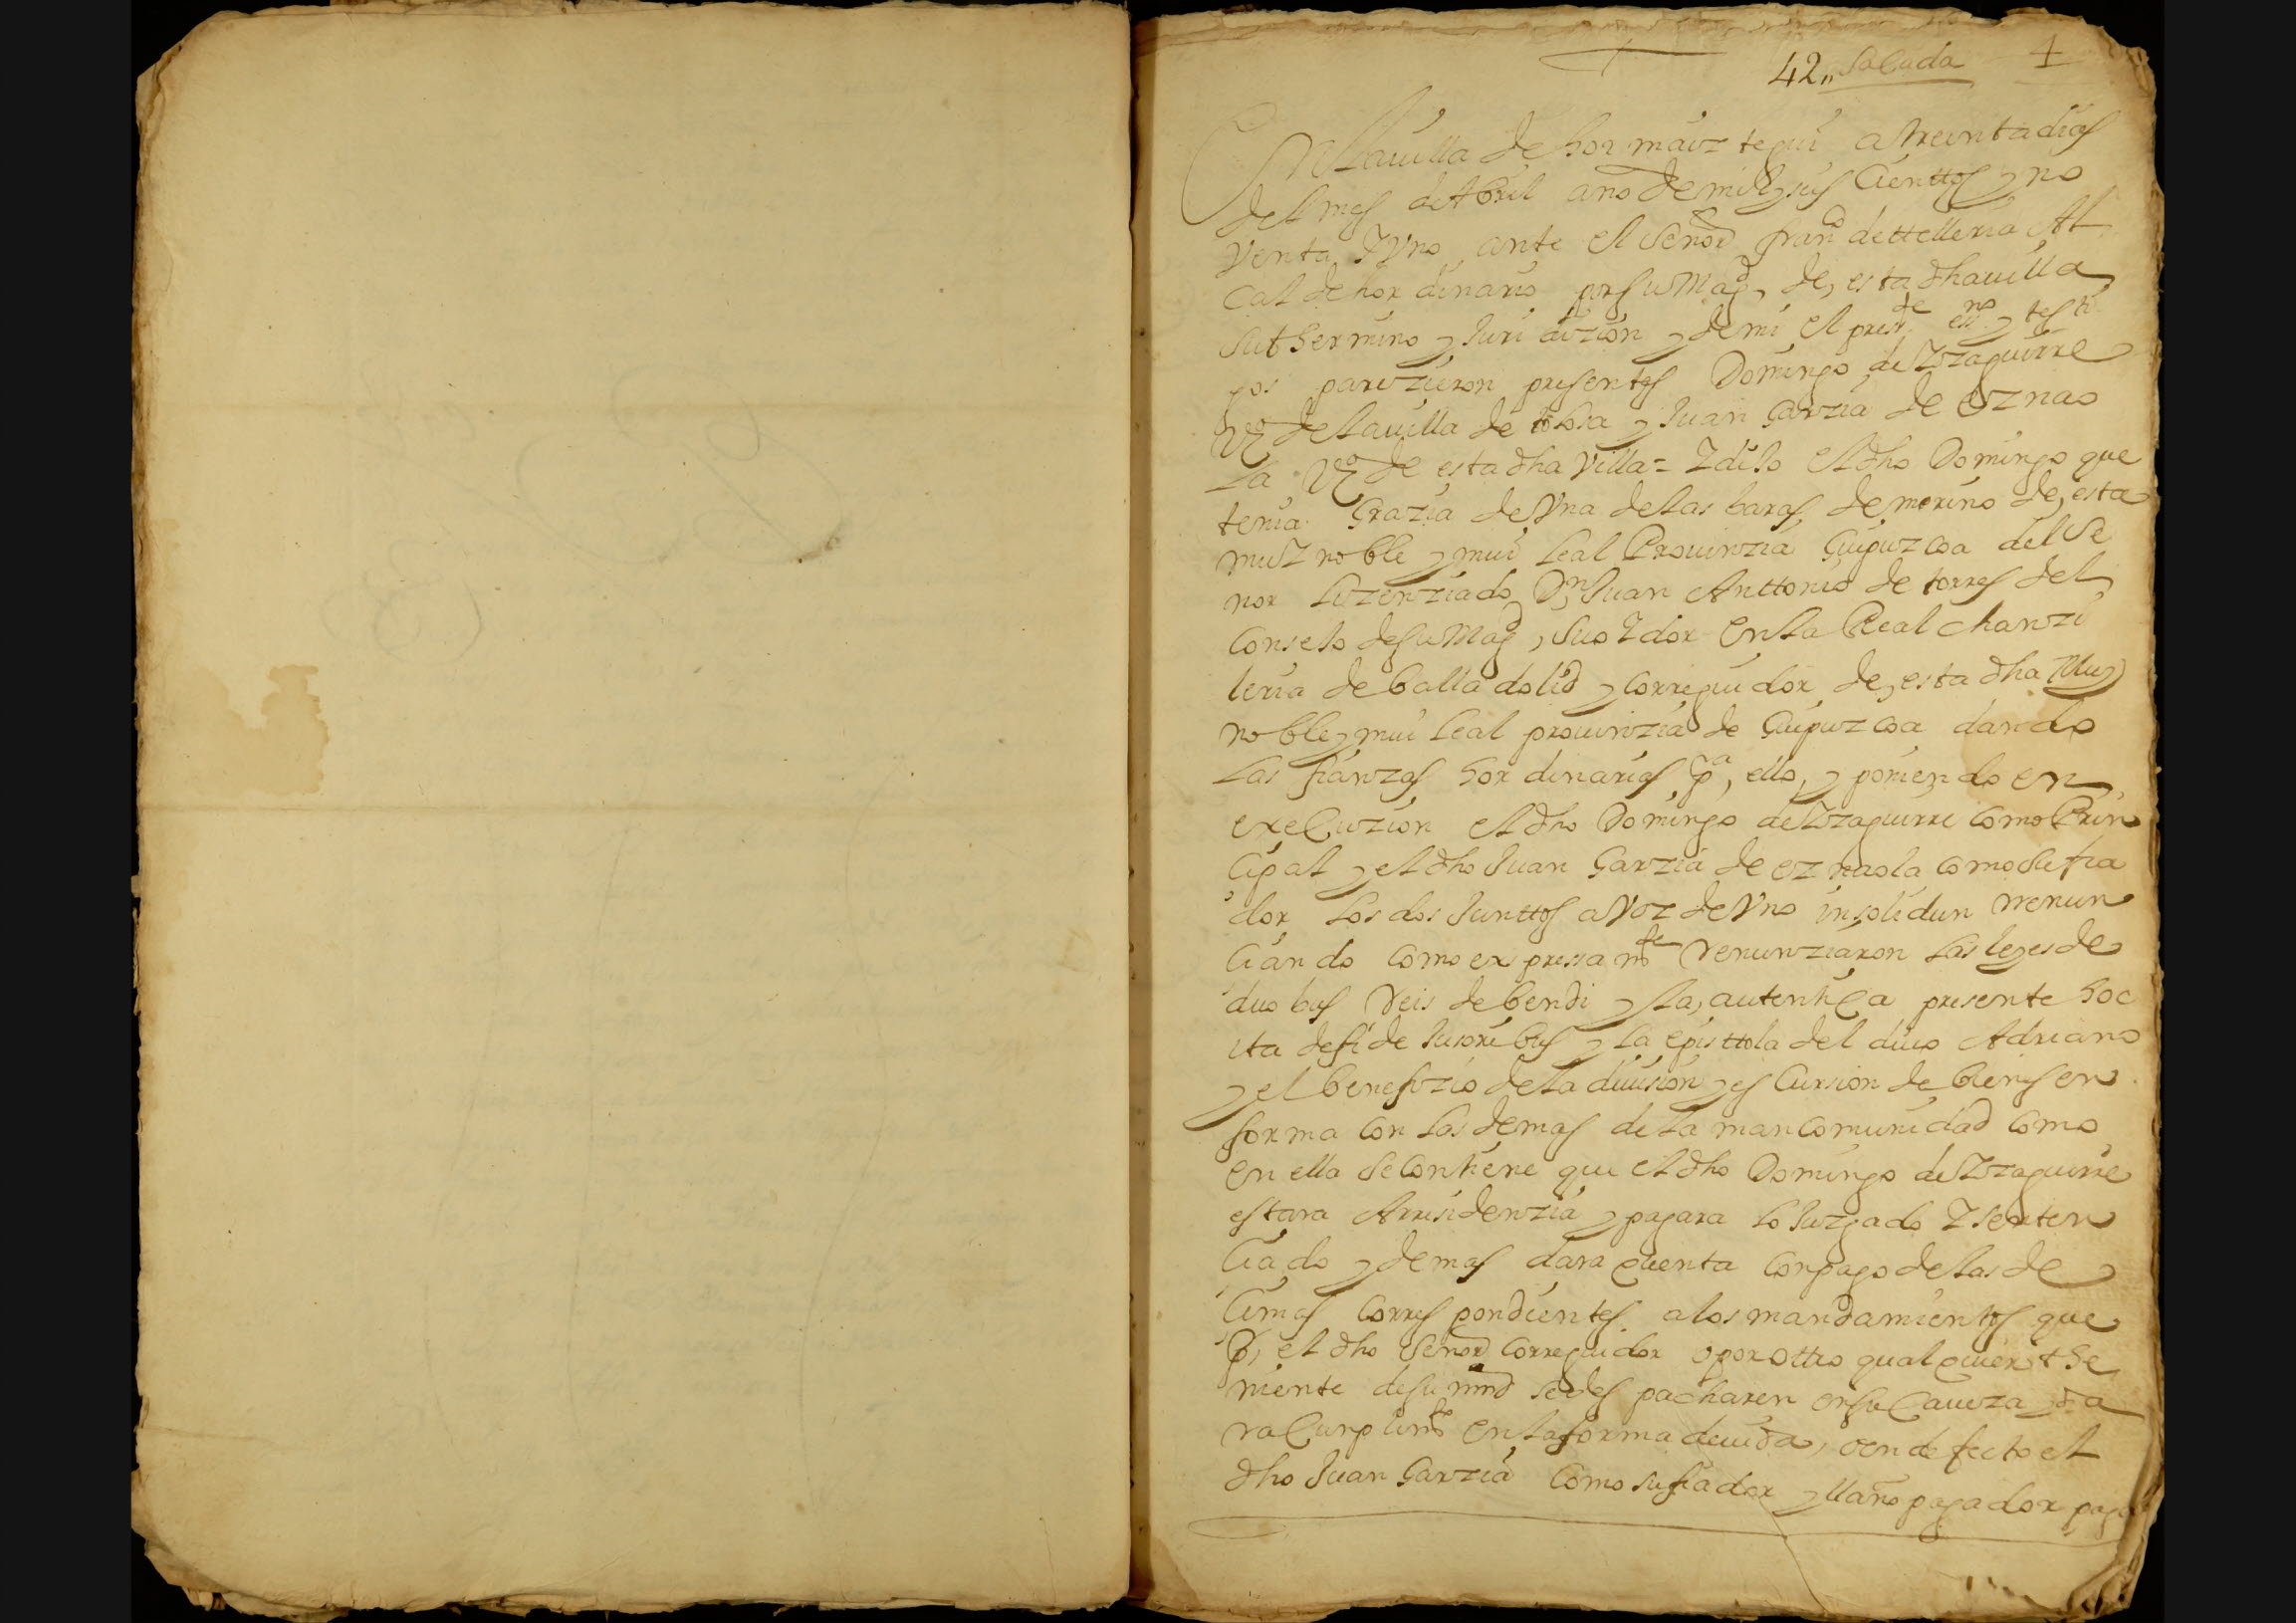 42,, Sacada 1
En la uilla de hormaiz tegui a treinta dias
del mes de Abril ano de mil y seis Cienttos y no
venta Y Vno ante el Señor franco de ttelleria Al
calde hor dinario por su Magd, de, esta dha uilla
su thermino y Juri dizion y de mi el preste essno y testi
gos parezieron presentes Domingo de Yzaguirre
Vzo de la uilla de tolosa y Juan Garzia de Oznao
la Vzo de esta dha Villa = Y dijo el dho Domingo que
tenia Grazia de Vna de las baras de merino de, esta
muY noble y mui leal Prouinzia Guipuzcoa del Se
nor Lizenziado Dn Juan Anttonio de torres del
Consejo de su Magd, su oYdor en la Real chanzi
leria de balladolid y corregidor de, esta dha Muy
noble y mui leal prouinzia de Guipuzcoa dando
las fianzas hor dinarias pa, ello, y poniendo en
execuzion el dho Domingo de Yzaguirre como Prin
cipal y el dho Juan Garzia de oznaola como su fia
dor los dos Junttos a Voz de Vno insolidun rrenun
ciando como expressa mte renunziaron las leyes de
duo bus Reis de bendi y la, autentica presente hoc
ita de fide Jusoribus y la epistola del diuo Adriano
y el benefizio de la diuision y es Cursion de bienes en
forma con las demas de la mancomunidad como
en ella se contiene que el dho Domingo de Yzaguirre
estara Arresidenzia y pagara lo Juzgado Y senten
ciado y demas dara quenta con pago de las de
cimas corres pondientes a los mandamientos que
Pr, el dho Señor corregidor o por ottro qual quier the
niente de su mrd se des pacharen en su Caueza y da
ra Cunplimto en la forma deuida, o en defecto el
dho Juan Garzia como su fiador y llano pagador paga